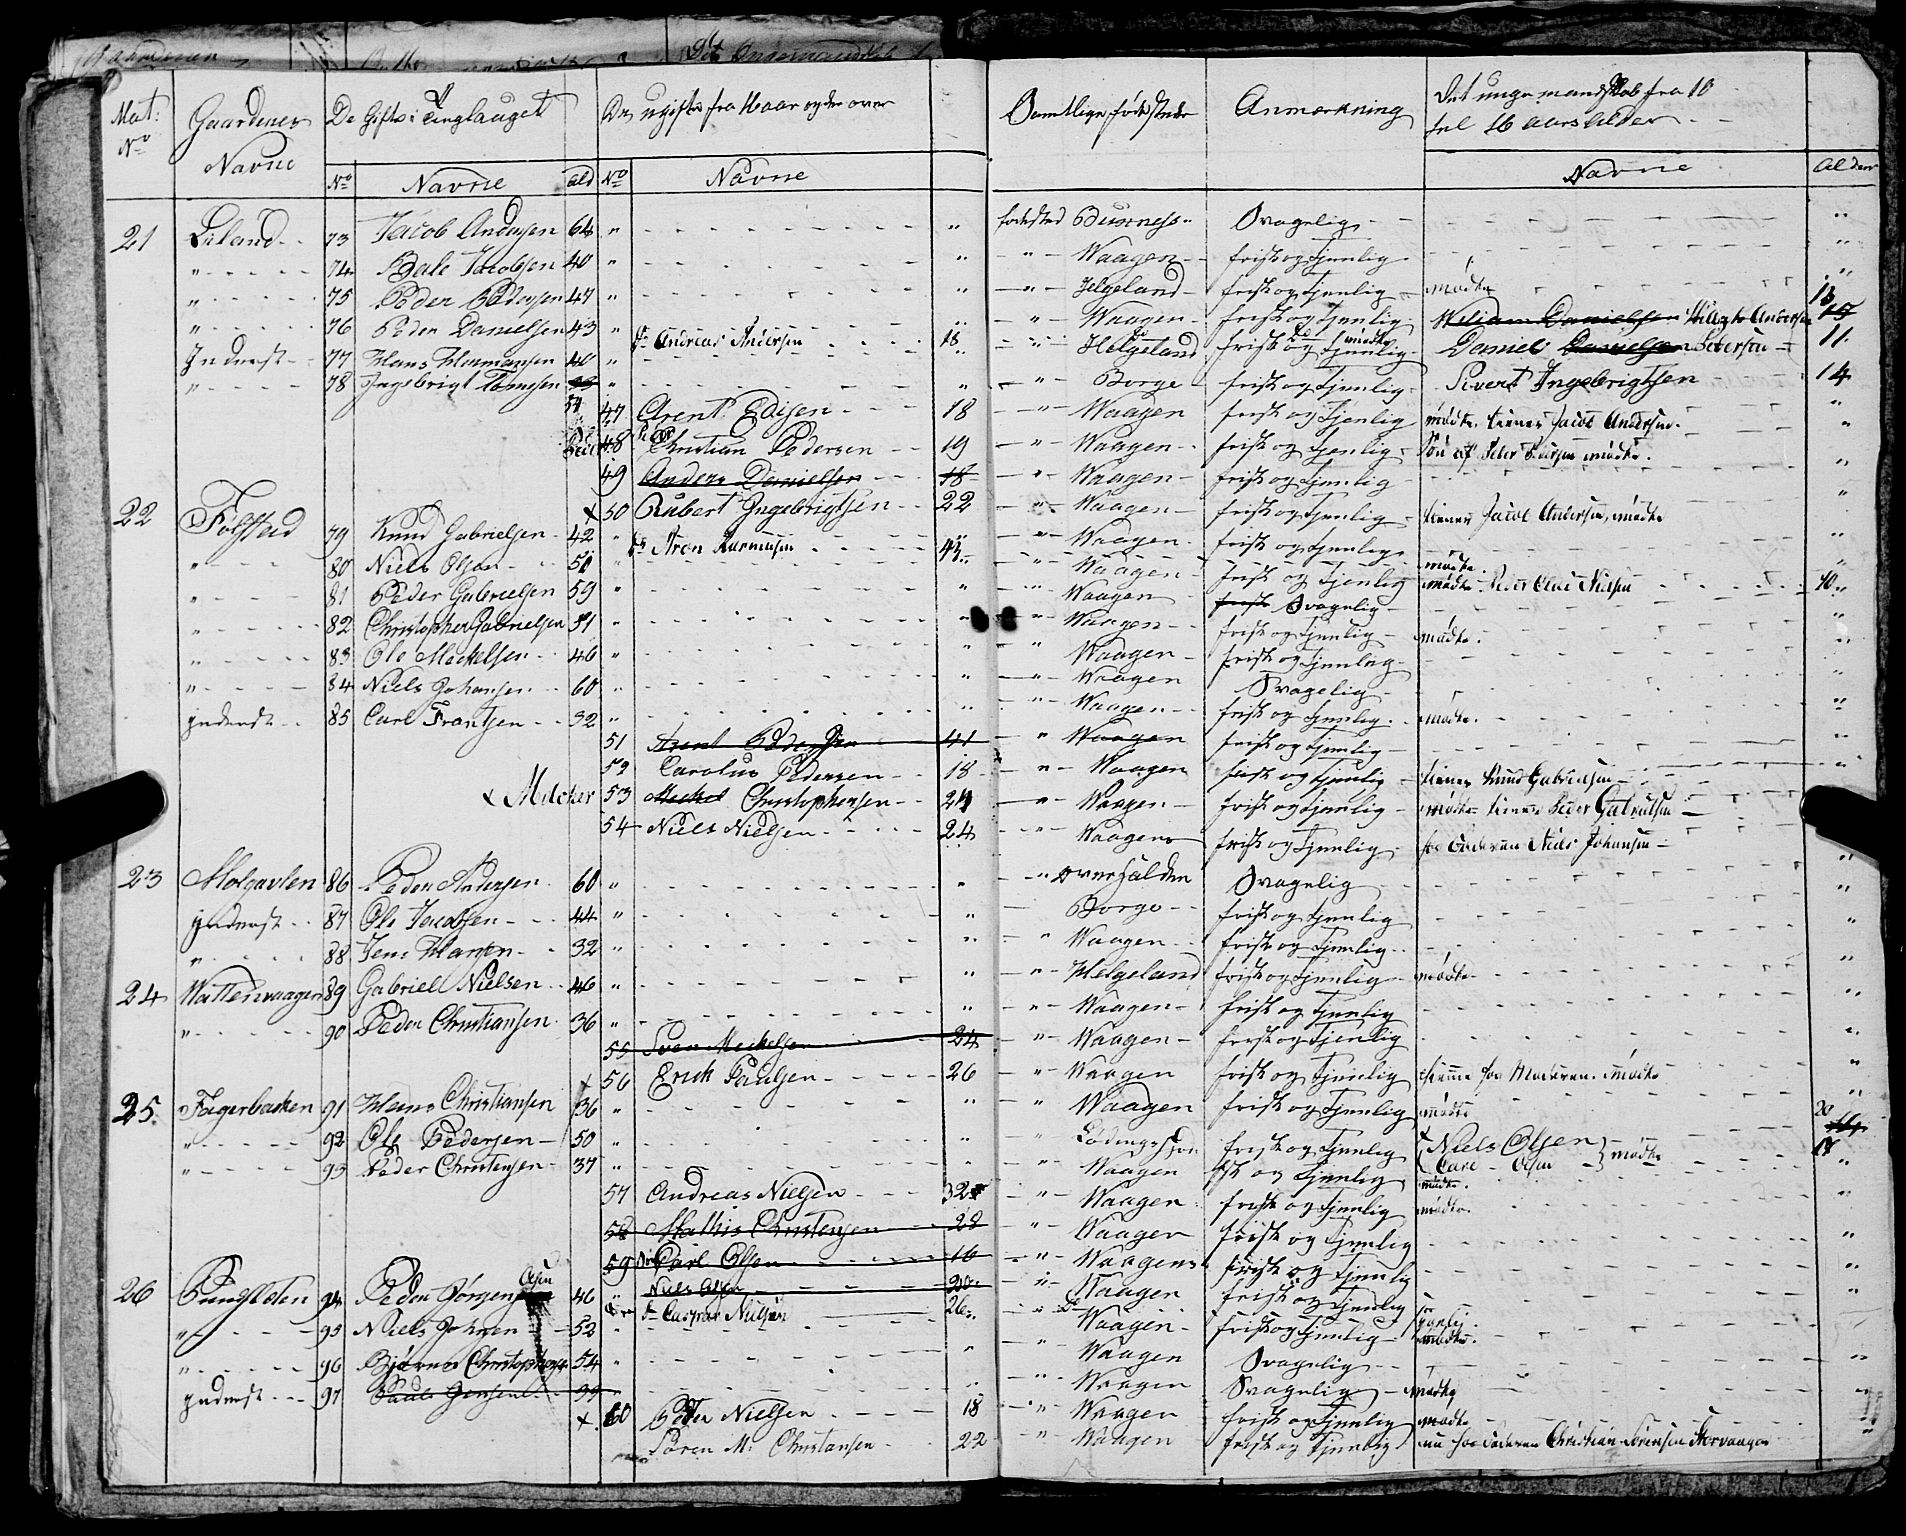 Mat: No Gaardenes Navne De Gifte i Tinglauget De ugifte fra 16 aar og der over Samtlige fødestæder Anmærkning Det unge mandskab fra 10 til 16 aars Alder
No Navne Ald No Navne Navne Alder
21 Liland 73 Jacob Andersen 64 " " fødested Buxness Svagelig "
" 74 Bale Jacobsen 40 " " " Waagen frisk og tjenlig "
" 75 Peder Pedersen 47 " " " Helgeland frisk og tjenlig mødte "
" 76 Peder Danielsen 43 " " " Waagen frisk og tjenlig Wiliam Danielsen Andersen 13
Inderst 77 Hans Hermansen 40 Andreas Andersen 18 " Helgeland frisk og tjenlig mødte Daniel Danielsen Pedersen 11
" 78 Ingebrigt Tomesen 51 " " " Borge frisk og tjenlig Sivert Ingebrigtsen 14
47 Arent Edisen 18 " Waagen frisk og tjenlig mødte tienner Jacob Andersen "
48 Christian Pedersen 19 " Waagen frisk og tjenlig Søn af Peder Pedersen mødte "
49 Anders Danielsen 18 " Waagen frisk og tjenlig "
x 50 Rubert Ingebrigtsen 22 " Waagen frisk og tjenlig tienner Jacob Andersen, mødte "
22 Følstad 79 Knud Gabrielsen 42 " Aron Rasmusen 43 " Waagen frisk og tjenlig "
" 80 Niels Olsen 51 " " Waagen frisk og tjenlig mødte "
" 81 Peder Gabrielsen 59 " " " Waagen frisk Svagelig mødte Olai Nielsen 10
" 82 Christopher Gabrielsen 51 " " " Waagen frisk og tjenlig mødte "
" 83 Ole Meckelsen 46 " " " Waagen frisk og tjenlig "
" 84 Niels Johansen 60 " " " Waagen Svagelig "
Inderst 85 Carl Frantsen 32 " " " Waagen frisk og tjenlig mødte "
51 Arent Pedersen 41 " Waagen frisk og tjenlig "
52 Carolus Pedersen 18 " Waagen frisk og tjenlig tienner Knud Gabrielsen "
x Melcher 53 Meckel Christophersen 24 " Waagen frisk og tjenlig mødte tienner Peder Gabrielsen
54 Niels Nielsen 24 " Waagen frisk og tjenlig hos Faderen Niels Johansen
23 Molgavlen 86 Peder Andersen 60 " " " Overhalden Svagelig "
Inderst 87 Ole Jacobsen 44 " " Borge frisk og tjenlig "
" 88 Jens Hansen 32 " " " Waagen frisk og tjenlig "
24 Wattervaagen 89 Gabriel Nielsen 46 " " " Helgeland frisk og tjenlig mødte "
" 90 Peder Christiansen 36 " " " Waagen frisk og tjenlig "
55 Sven Meckelsen 24 " Waagen frisk og tjenlig "
x 56 Erick Paulsen 26 " Waagen frisk og tjenlig hiemme hos Moderen mødte "
25 Fagerbacken 91 Hans Christiansen 36 " " " Waagen frisk og tjenlig mødte "
" 92 Ole Pedersen 50 " " " Lødings frisk og tjenlig Niels Olsen 20
" 93 Peder Christensen 37 " " " Waagen frisk og tjenlig Carl Olsen mødte 17
57 Andreas Nielsen 32 " Waagen frisk og tjenlig mødte "
58 Mathis Christensen 28 " Waagen frisk og tjenlig "
59 Carl Olsen 16 " Waagen frisk og tjenlig "
26 Pungsleten 94 Peder Jørgensen Olsen 46 " Niels Olsen 20 " Waagen frisk og tjenlig "
" 95 Niels Johnsen 52 Caspar Nielsen 26 " Waagen frisk og tjenlig mødte
" 96 Bjørnar Christophersen 54 " " " Waagen Svagelig "
Inderst 97 Paul Jensen " " " Waagen Svagelig mødte "
x 60 Peter Nielsen 18 " Waagen frisk og tjenlig mødte "
Søren M: Christiansen 22 " Waagen frisk og tjenlig nu hos Faderen Christian Sørensen Storvaagen "